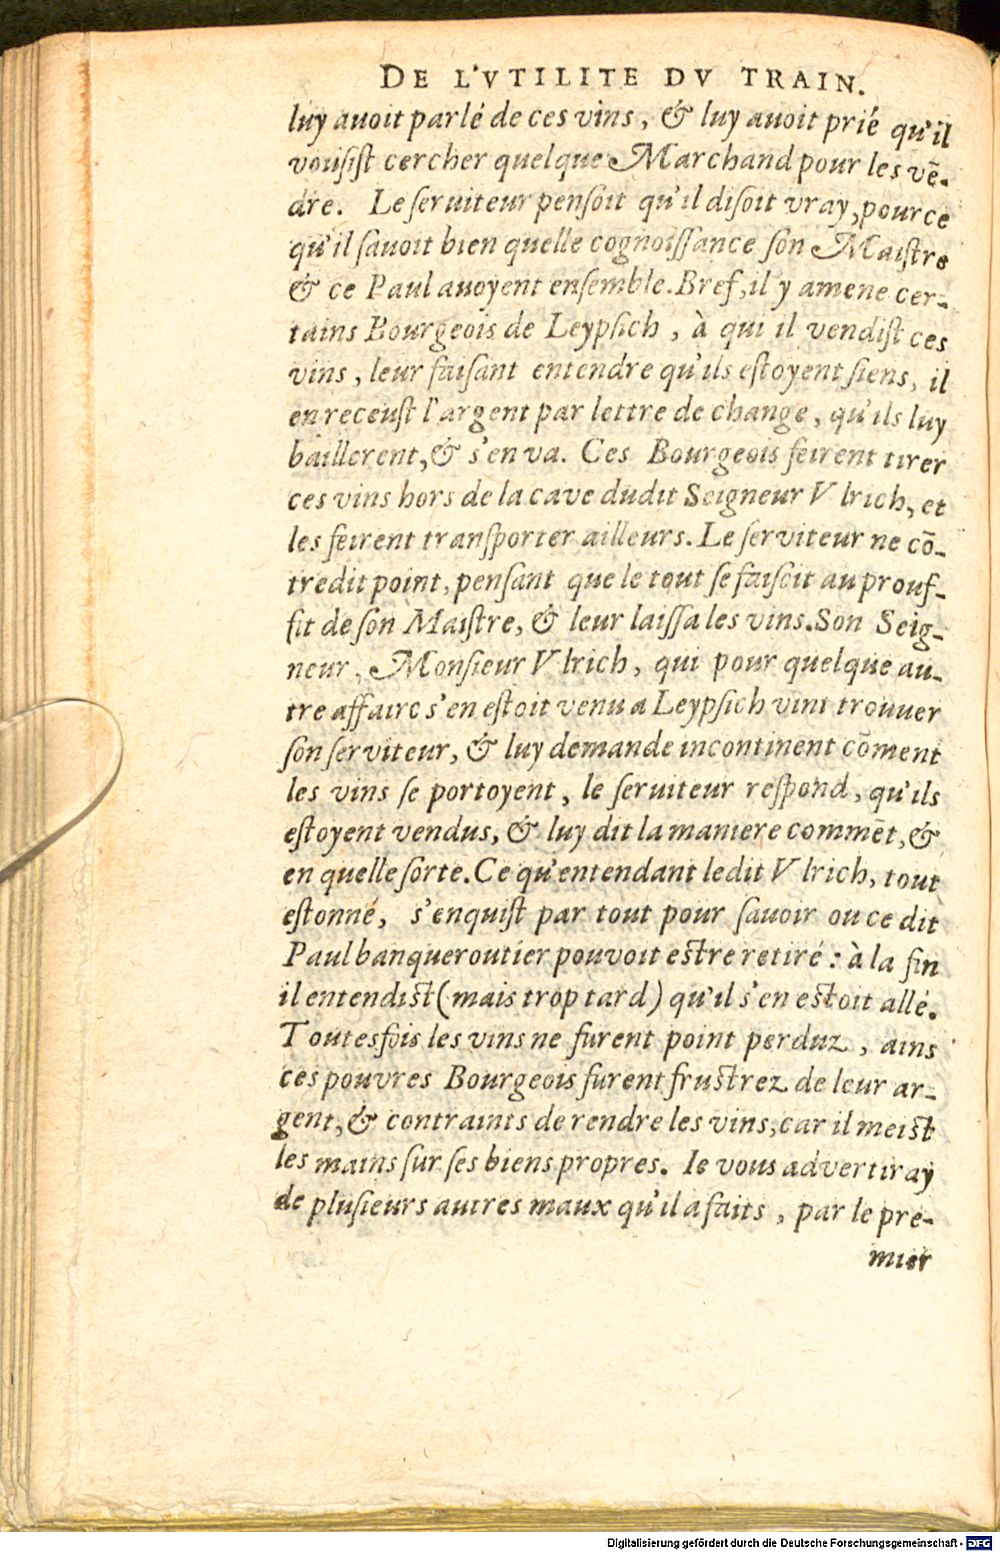 DE L'VTILITE DV TRAIN.
luy auoit parlé de ces vins, & luy auoit prié qu'il
vousiſt cercher quelque Marchand pour les vē-
dre. Le ſeruiteur penſoit qu'il diſoit vray, pource
qu'il ſauoit bien quelle cognoiſſance ſon Maiſtre
& ce Paul auoyent enſemble. Bref, il y amene cer-
tains Bourgeois de Leypſich, à qui il vendiſt ces
vins, leur faiſant entendre qu'ils eſtoyent ſiens, il
en receuſt l'argent par lettre de change, qu'ils luy
baillerent, & s'en va. Ces Bourgeois feirent tirer
ces vins hors de la cave dudit Seigneur Vlrich, et
les feirent tranſporter ailleurs. Le ſerviteur ne cō-
tredit point, penſant que le tout ſe faiſoit au prouf-
fit de ſon Maiſtre, & leur laiſſa les vins. Son Seig-
neur, Monſieur Vlrich, qui pour quelque au-
tre affaire s'en eſtoit venu a Leypſich vint trouuer
ſon ſerviteur, & luy demande incontinent cōment
les vins ſe portoyent, le ſeruiteur reſpond, qu'ils
eſtoyent vendus, & luy dit la maniere commēt, &
en quelle ſorte. Ce qu'entendant ledit Vlrich, tout
eſtonné, s'enquiſt par tout pour ſauoir ou ce dit
Paul banqueroutier pouvoit eſtre retiré : à la fin
il entendiſt (mais trop tard) qu'il s'en eſtoit allé.
Toutesfois les vins ne furent point perduz, ains
ces pouvres Bourgeois furent fruſtrez de leur ar-
gent, & contraints de rendre les vins, car il meiſt
les mains ſur ſes biens propres. Ie vous advertiray
de pluſieurs autres maux qu'il a faits, par le pre-
mier
Digitalisierung gefördert durch die Deutsche Forschungsgemeinschaft - DFG